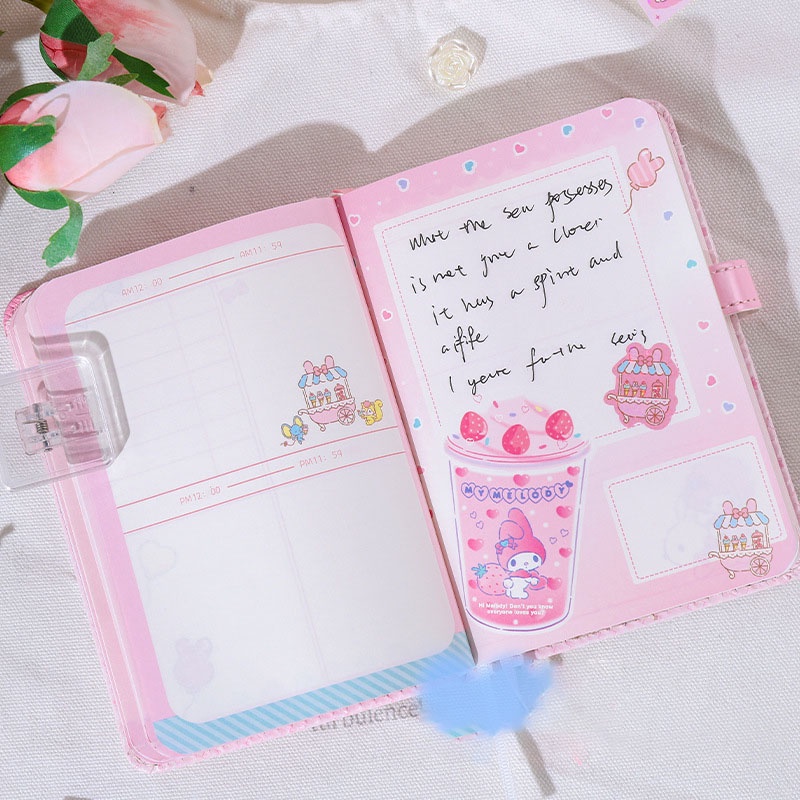 AM12: 00 —— AM11: 59
PM12: 00 —— PM11: 59
What the sea possesses
is not you a
it has a spirit and
a life
I for the
MY MELODY
Hi Melody! Don't you know
everyone loves you?!
turbulence